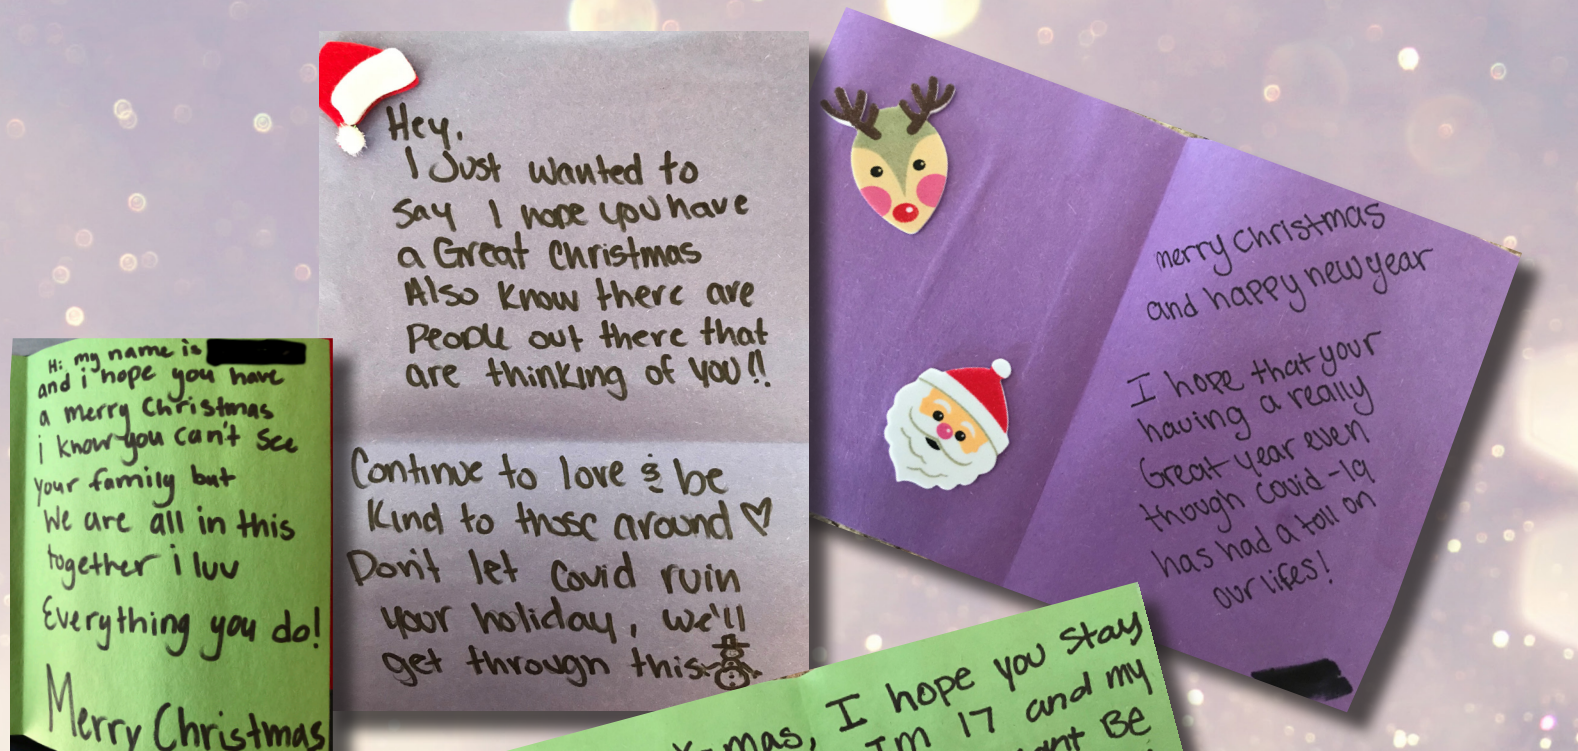 Hi my name is
and i hope you have
a merry Christmas
i know you can't see
your family but
We are all in this
together i luv
Everything you do!
Merry Christmas
Hey,
I Just wanted to
say I hope you have
a Great Christmas
Also know there are
People out there that
are thinking of you!!
Continue to love & be
Kind to those around ♡
Don't let Covid ruin
your holiday, we'll
get through this
merry christmas
and happy new year
I hope that your
having a really
Great year even
though covid-19
has had a toll on
our lifes!
mas, I hope you stay
Im 17 and my
Be